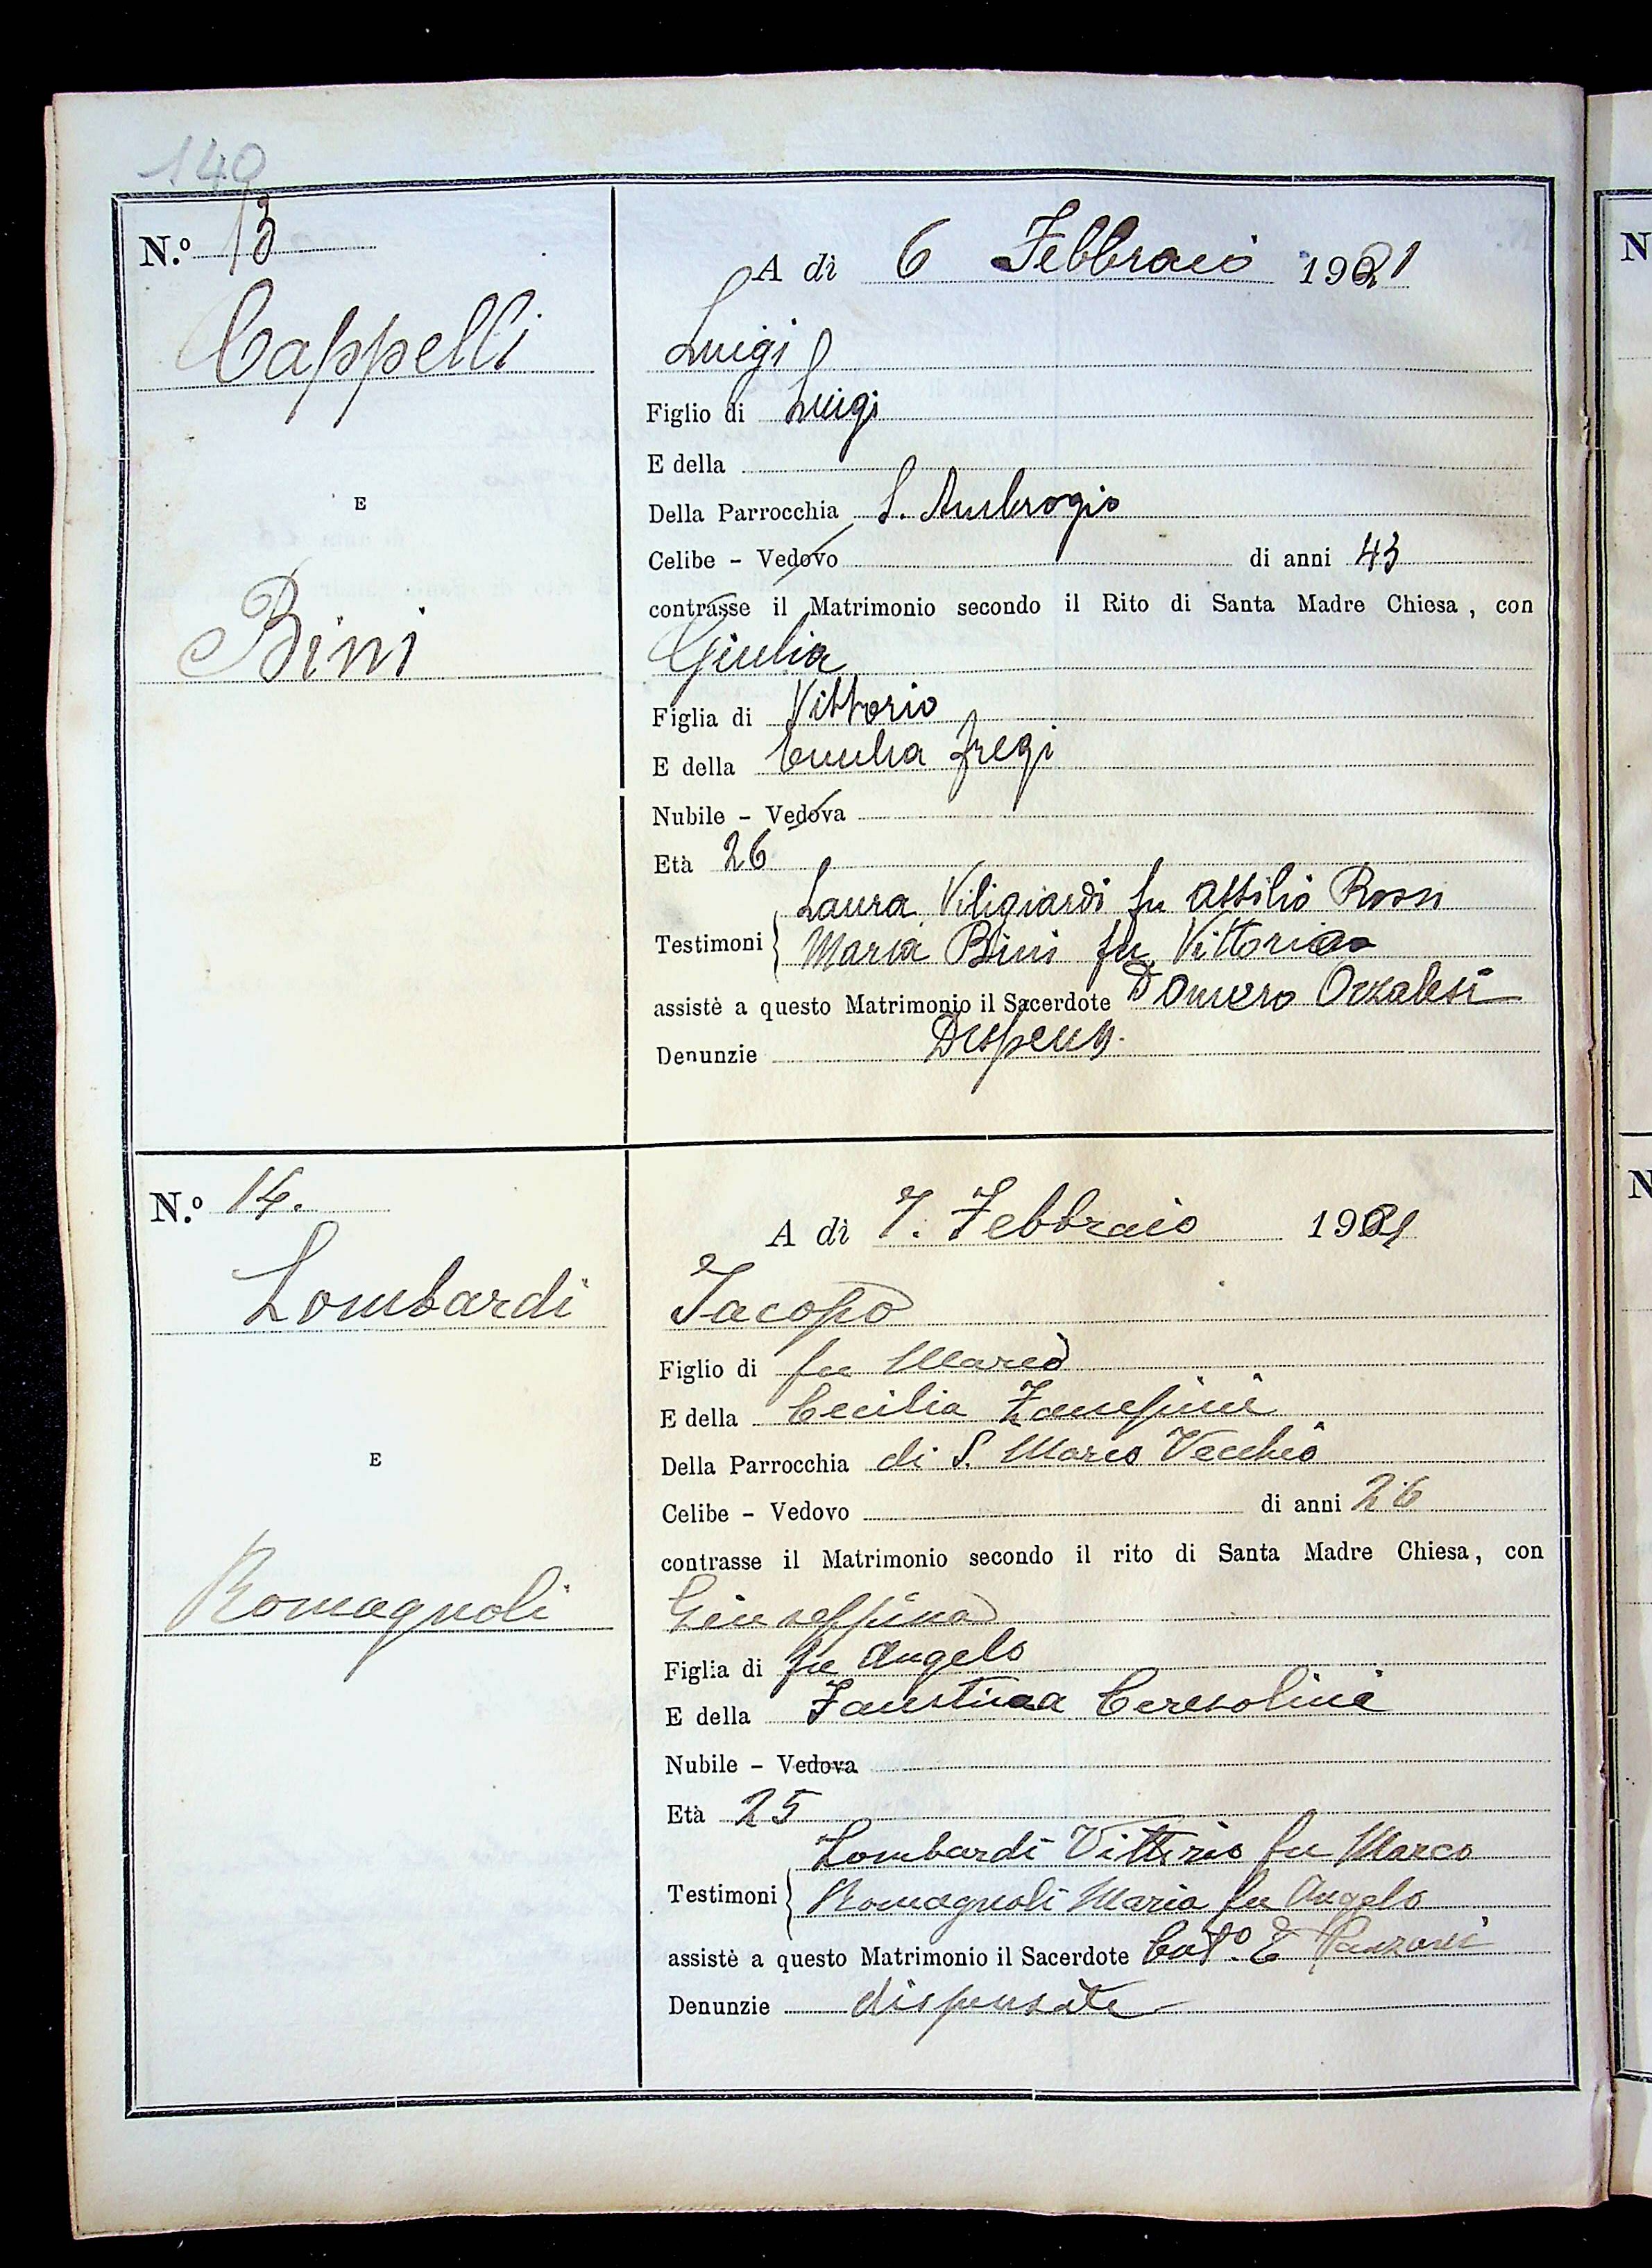 140
N.º 13
A dì 6 Febbraio 1921
Cappelli
Luigi
Figlio di Luigi
E della
E
Della Parrocchia S. Ambrogio
Celibe - Vedovo di anni 43
contrasse il Matrimonio secondo il Rito di Santa Madre Chiesa, con
Bini
Giulia
Figlia di Vittorio
E della Emilia Fregi
Nubile - Vedova
Età 26
Laura Viligiardi fu Attilio Rossi
Testimoni Maria Bini fu Vittorio
assistè a questo Matrimonio il Sacerdote D Omero Orzalesi
Denunzie Dispens.
N.º 14.
A dì 7. Febbraio 1921
Lombardi
Jacopo
Figlio di fu Marco
E della Cecilia
E
Della Parrocchia di S. Marco Vecchio
Celibe - Vedovo di anni 26
contrasse il Matrimonio secondo il rito di Santa Madre Chiesa, con
Romagnoli
Giuseppina
Figlia di fu Angelo
E della Faustina Ceresolini
Nubile - Vedova
Età 25
Lombardi Vittorio fu Marco
Testimoni Romagnoli Maria fu Angelo
assistè a questo Matrimonio il Sacerdote Cut.º E Panzoni
Denunzie dispensate
N
N